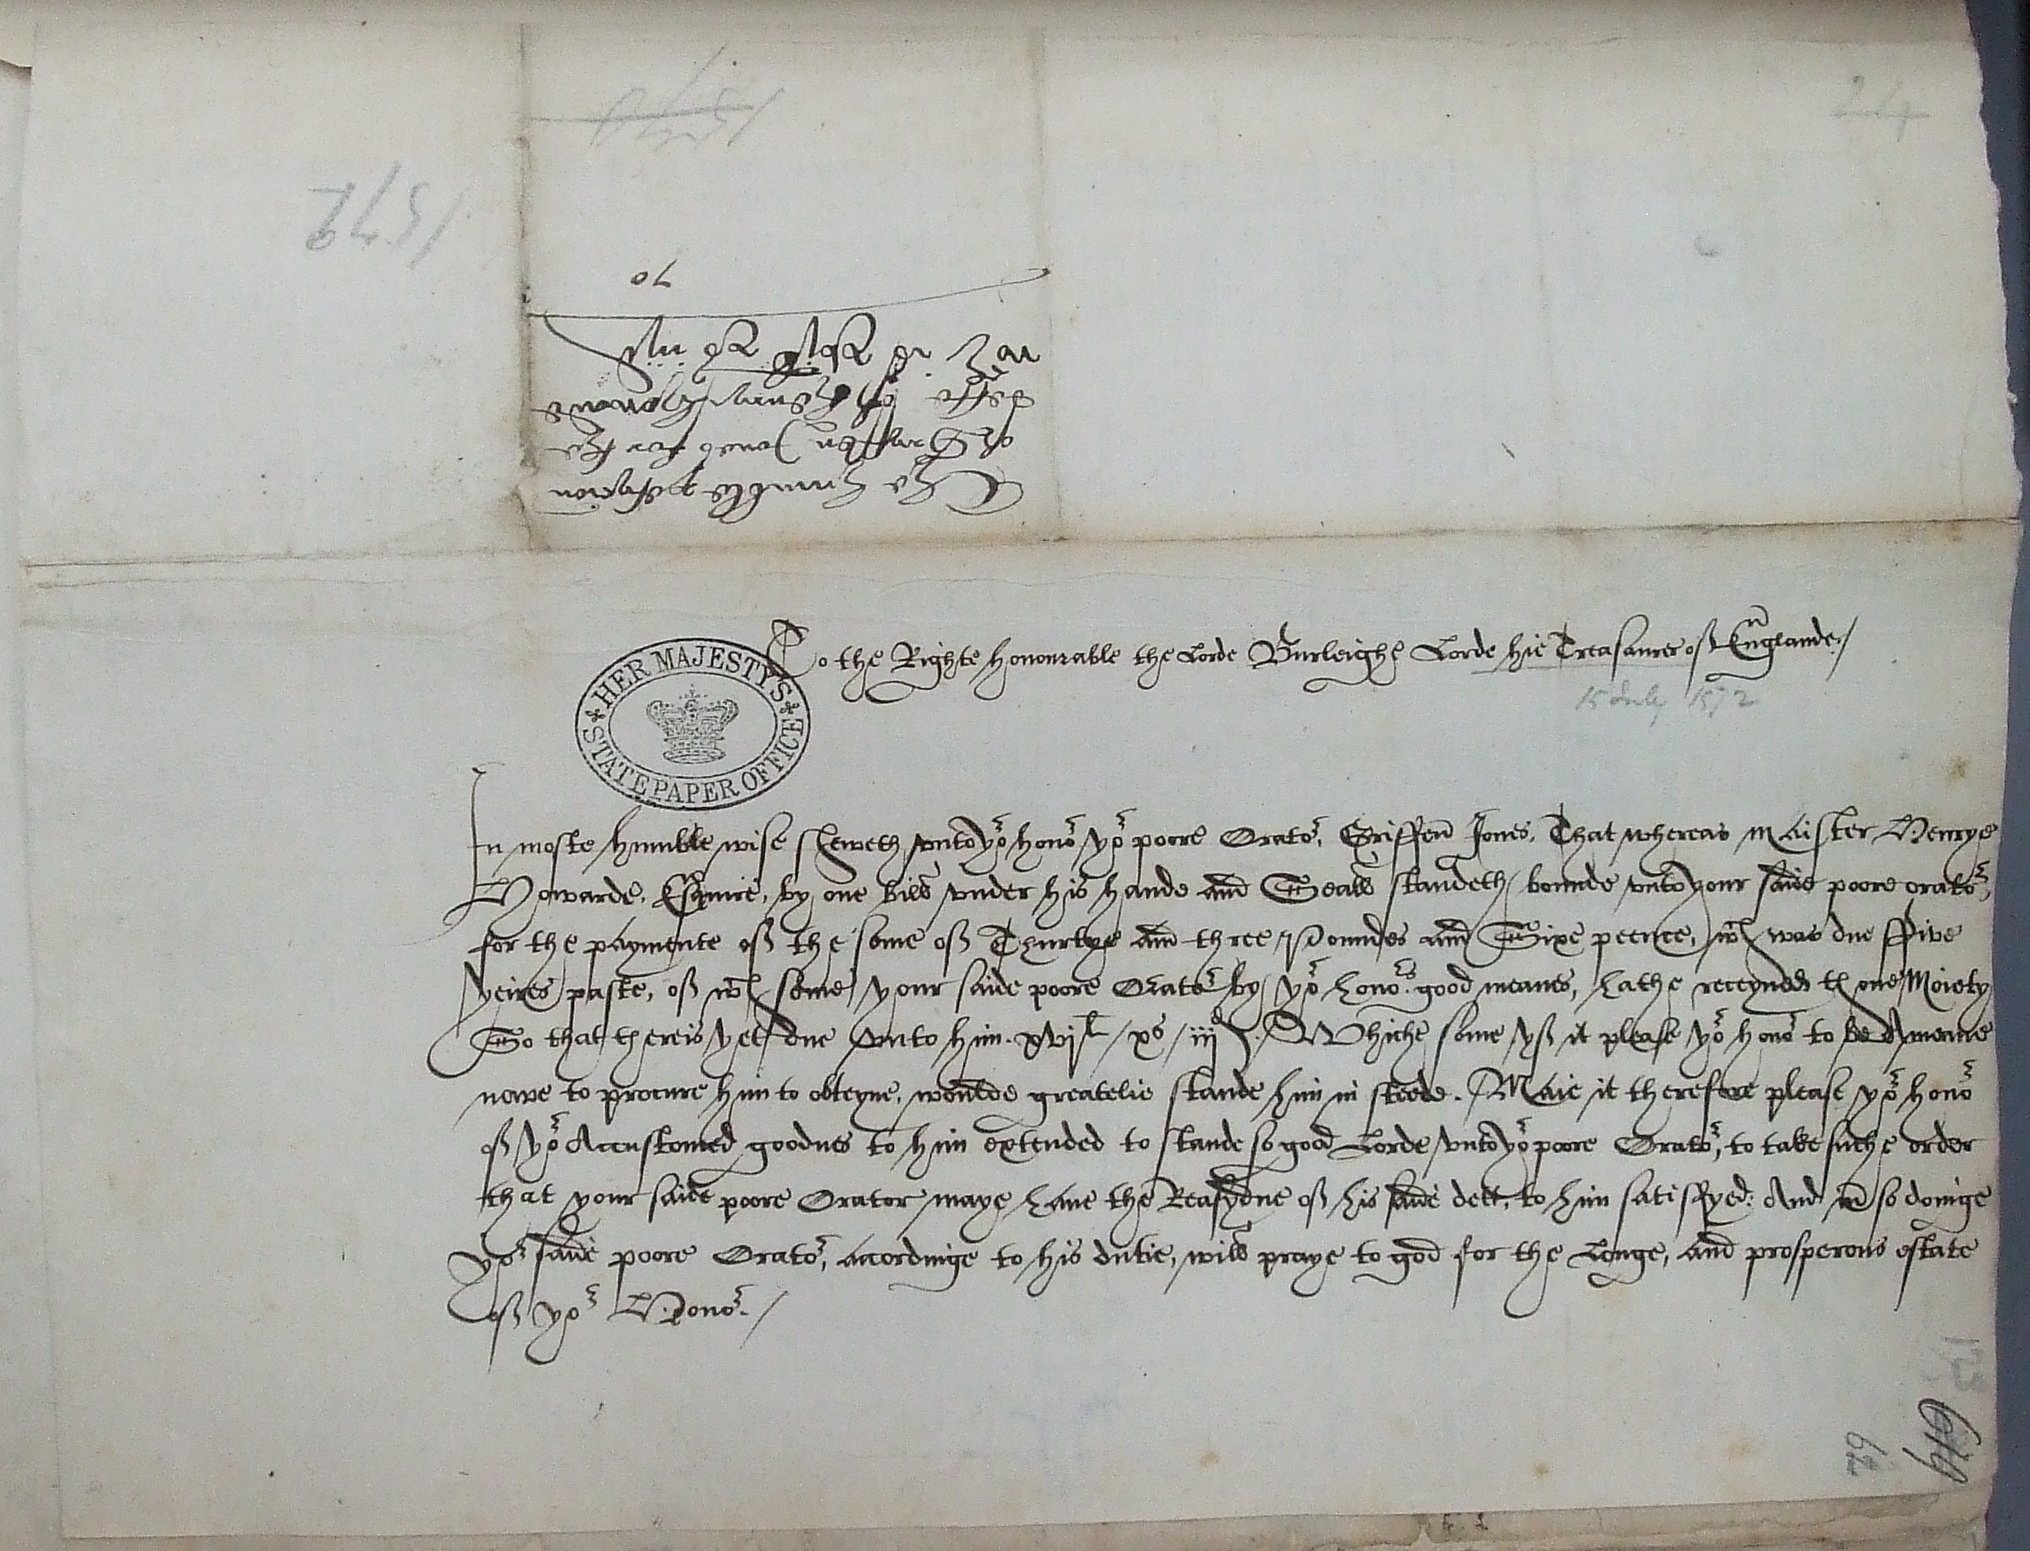 24
1572
70
The humble peticion
of Griffen Jones for the
dette of Henry Howarde
To the Righte honourable the Lorde Burleighe Lorde hie Treasaurer of Englande./
15 July 1572
HER MAJESTY'S STATE PAPER OFFICE
In moste humble wise sheweth unto yor honor yor poore Orator, Griffen Jones, That whereas maister Henrye
Howarde, Esquire, by one bill under his hande and Seall standeth bounde unto your saide poore orator,
for the paymente of the some of Thurtye and three Poundes and Sixe peence, wch was due ffive
yeires paste, of wch some your saide poore Orator by yor honors good meanes, hathe receyued th one Moiety
So that thereis yet due unto him. xvjl / xs / iijd. Whiche some yf it please yor honor to be A meane
nowe to procure him to obteyne, woulde greatelie stande him in steede. Maie it therefore please yor honor
of yor Accustomed goodnes to him extended to stande so good Lorde unto yor poore Orator, to take suche order
that your saide poore Orator maye haue the Reasydue of his saide dett, to him satisfyed: And in so doinge
yor saide poore Orator, accordinge to his dutie, will praye to god for the Longe, and prosperous estate
of yor Honor./
62